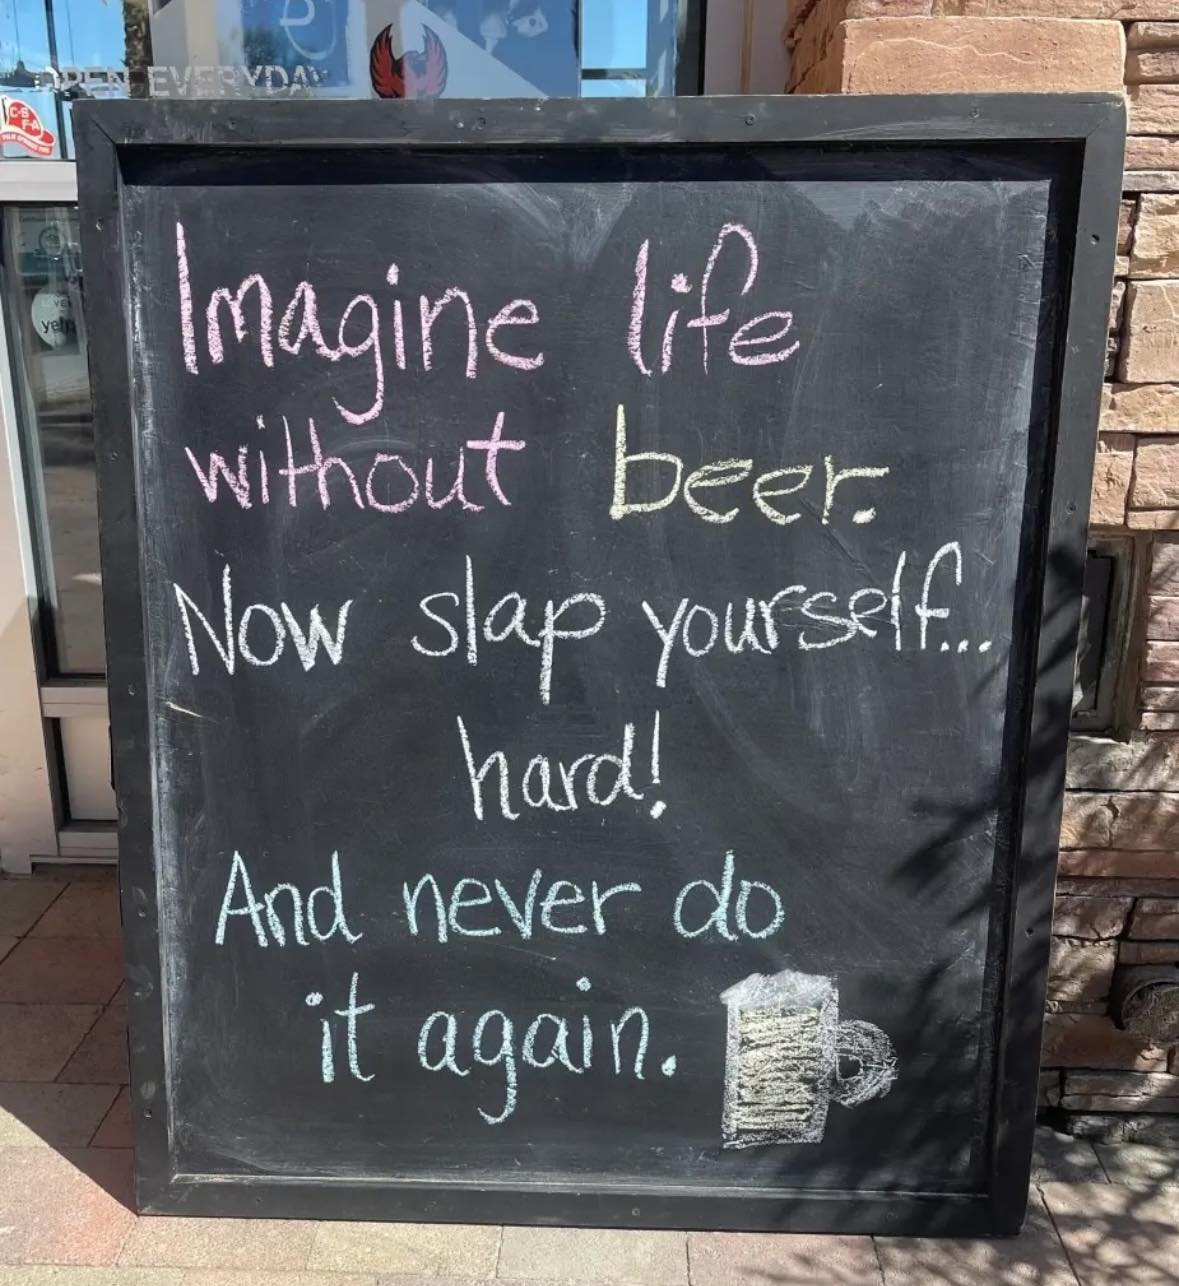 OPEN EVERYDAY
C-B
F-A
yelp
Imagine life
without beer.
Now slap yourself...
hard!
And never do
it again.